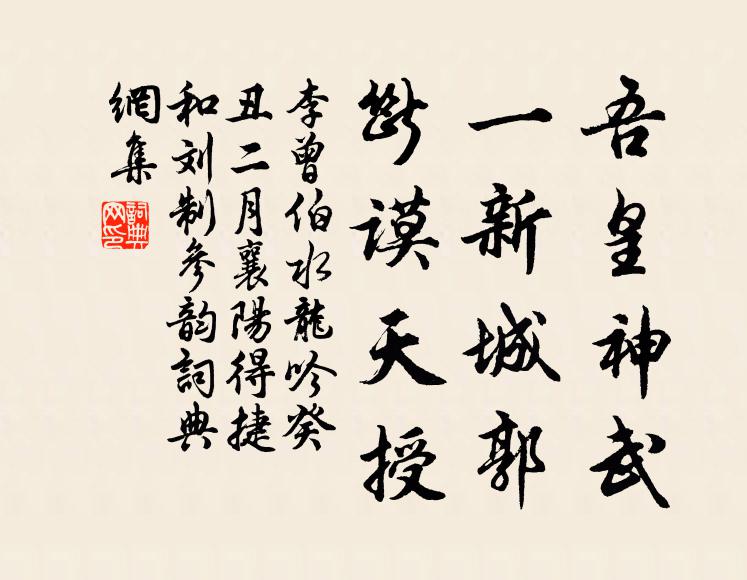 吾皇神武
一新城郭
斷謨天授
李曾伯水龍吟癸
丑二月襄陽得捷
和刘制參韵詞典
網集
詞典
网印